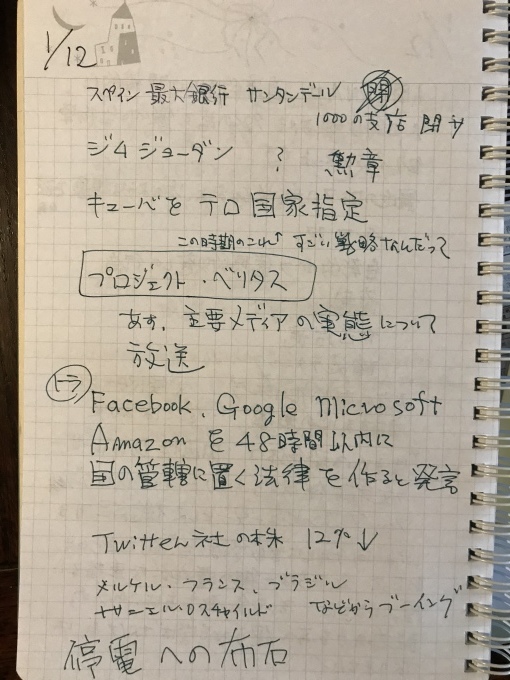 1/12
スペイン 最大銀行 サンタンデール
1000の支店 閉サ
ジム ジョーダン ? 勲章
キューバを テロ国家指定
この時期のこれ↑ すごい戦略なんだって
プロジェクト・ベリタス
あす、主要メディアの実態について
放送
トラ
Facebook、Google Microsoft
Amazon を 48時間以内に
国の管轄に置く法律を作ると発言
Twitter社の株 12%↓
メルケル・フランス、ブラジル
ナサニエル・ロスチャイルド などからブーイング
停電 への布石